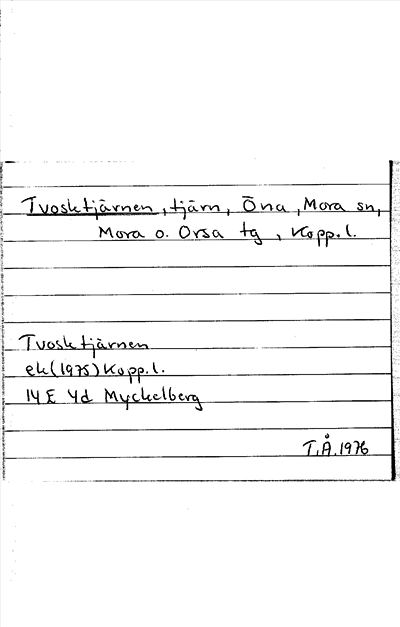 Tvosktjärnen, tjärn, Öna, Mora sn,
Mora o. Orsa tg, Kopp.l.
Tvosktjärnen
ek(1975)Kopp.l.
14 E 4d Myckelberg
T.Å.1976